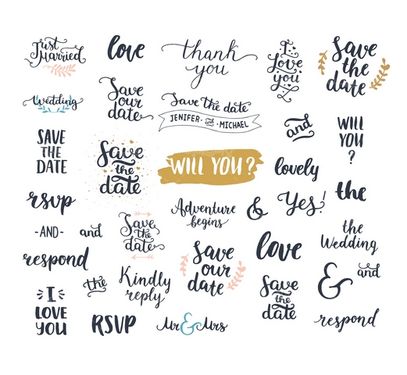 Just
Married
love
thank
you
I
Love
you
Save
the
date
Wedding
Save
our
date
Save the date
JENIFER and MICHAEL
and
WILL
YOU
?
SAVE
THE
DATE
Save
the
date
WILL YOU?
lovely
the
rsvp
Adventure
begins
&
Yes!
-AND-
and
Save
the
date
the
Wedding
respond
the
Kindly
reply
Save
our
date
love
&
and
I
LOVE
YOU
RSVP
Mr & Mrs
Save
the
date
respond